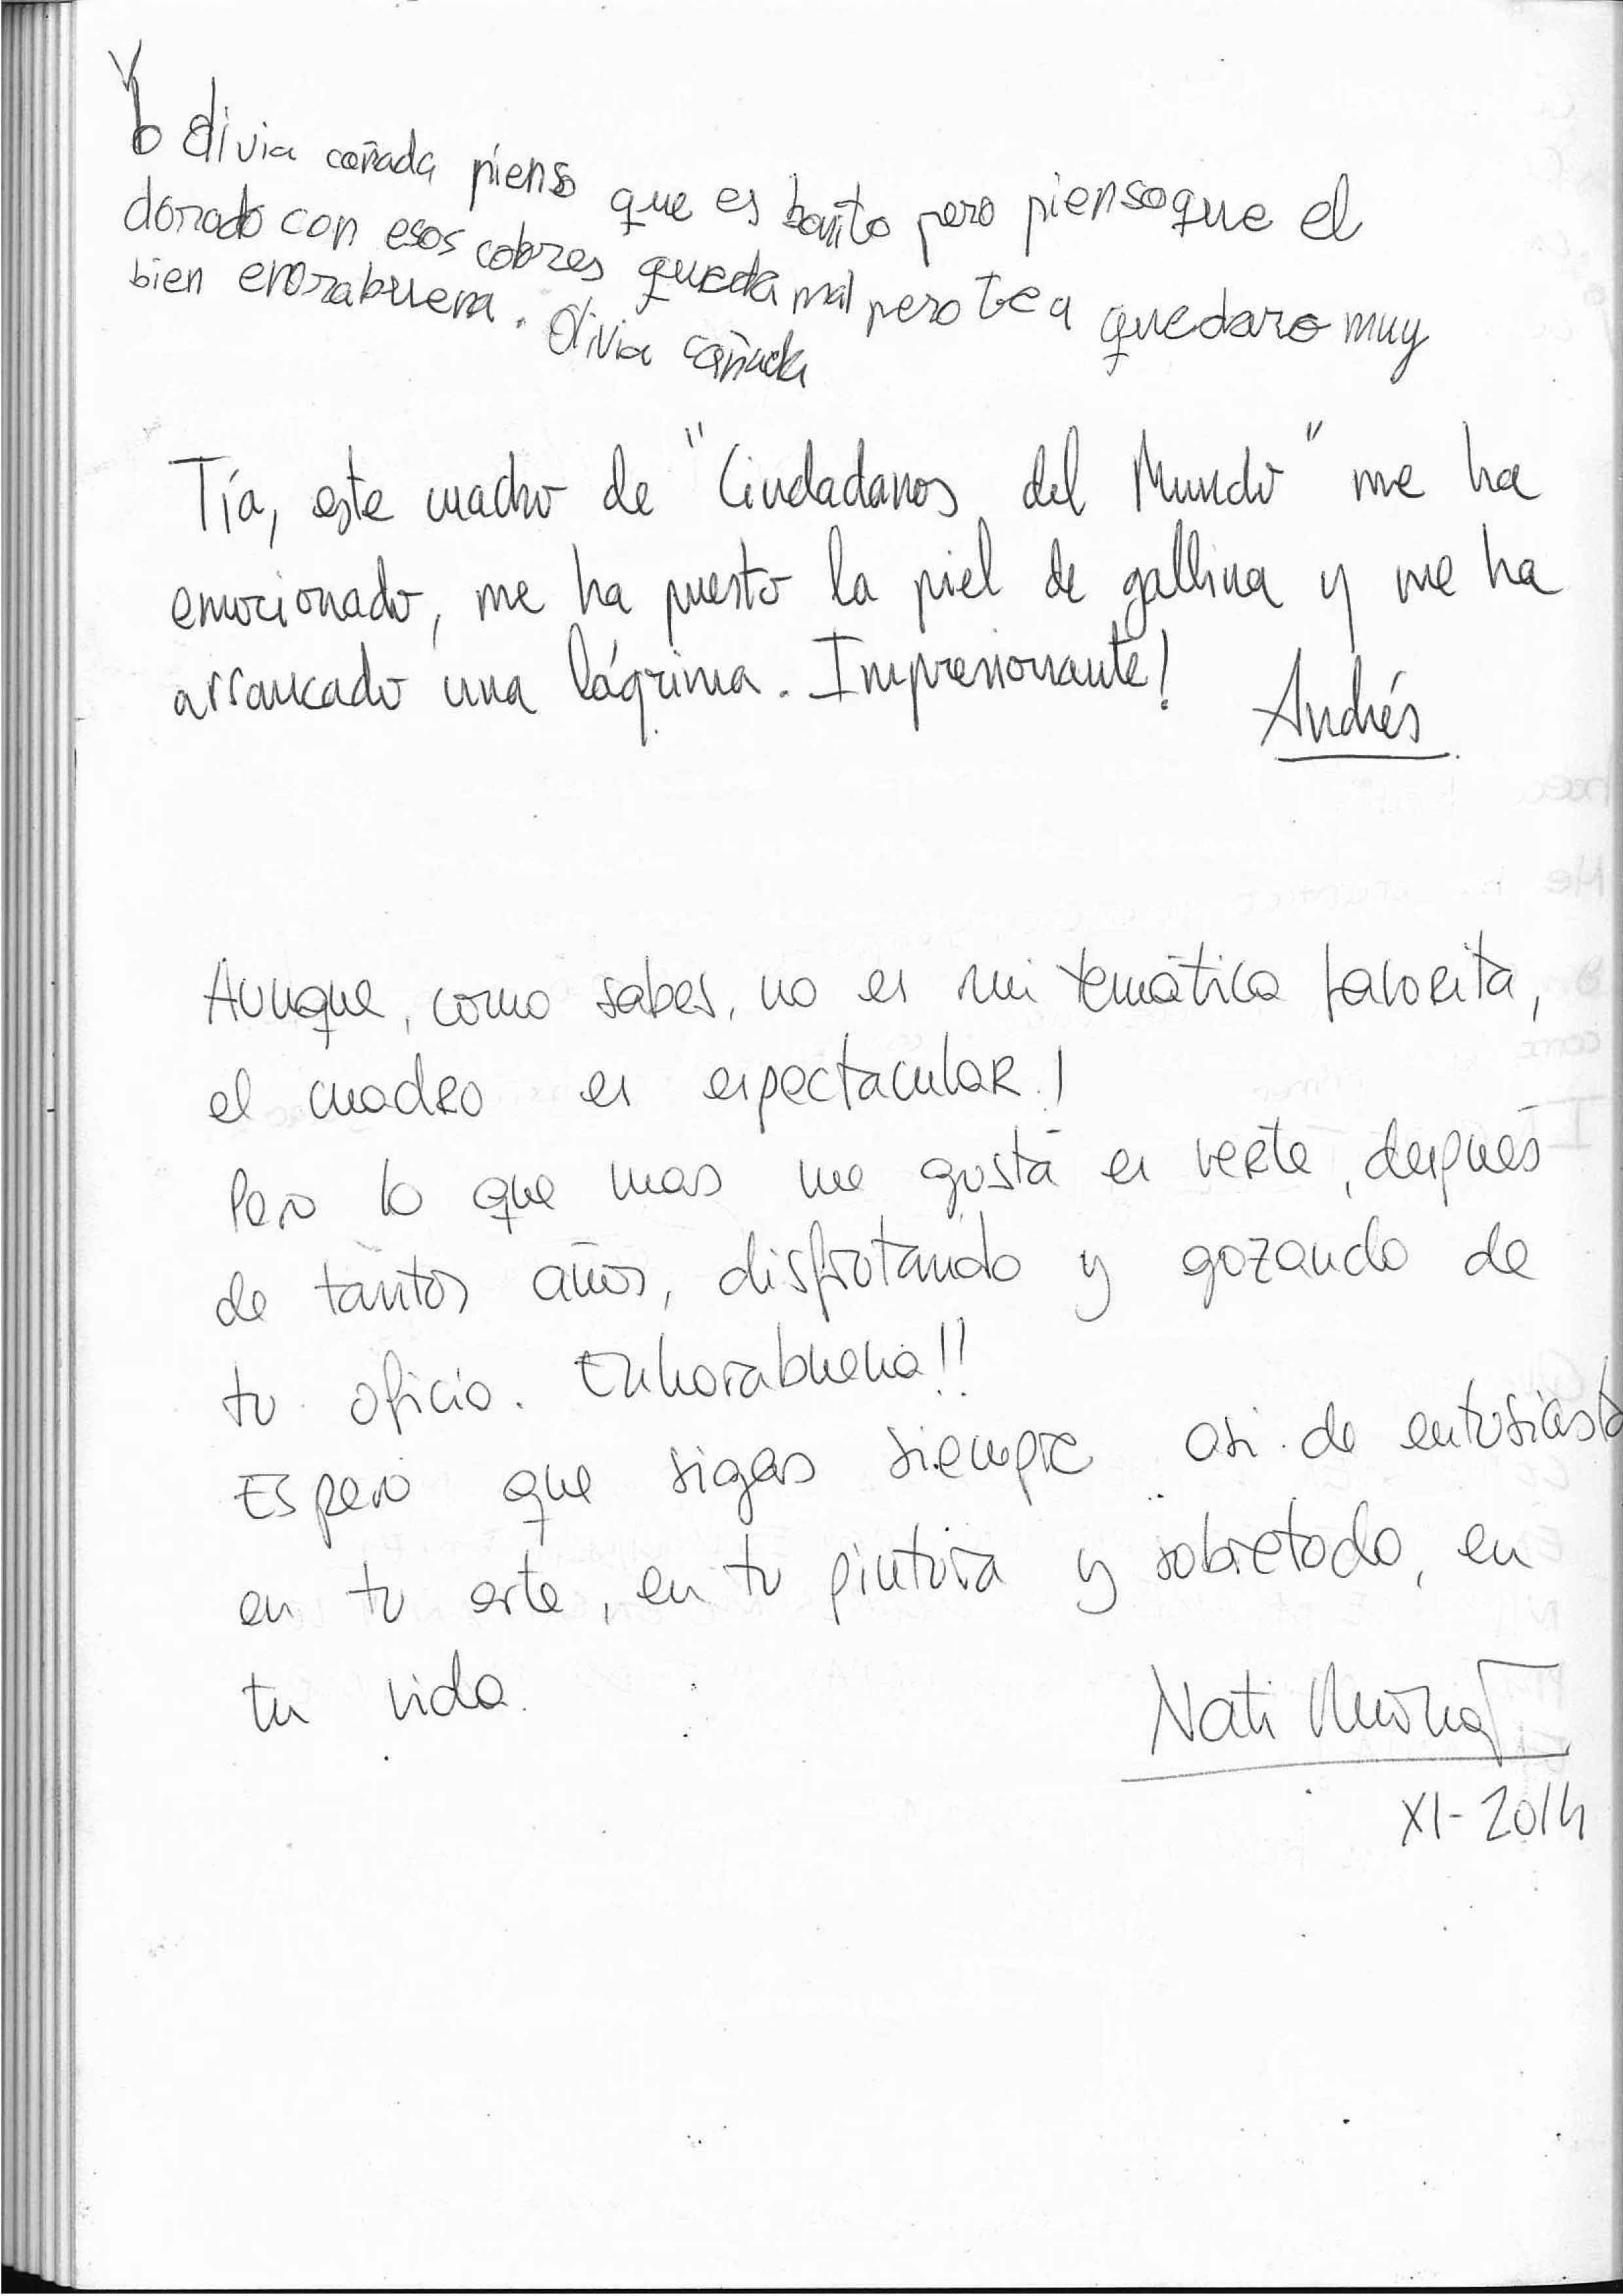 Yo Olivia cañada pienso que es bonito pero pienso que el
dorado con esos colores queda mal pero te a quedaro muy
bien enorabuena. Olivia cañada
Tía, este cuadro de "Ciudadanos del Mundo" me ha
emocionado, me ha puesto la piel de gallina y me ha
arrancado una lágrima. Impresionante!
Andrés
Aunque, como sabes, no es mi temática favorita,
el cuadro es espectacular!
Pero lo que mas me gusta es verte, después
de tantos años, disfrutando y gozando de
tu oficio. Enhorabuena!!
Espero que sigas siempre asi de entusiasta
en tu arte, en tu pintura y sobretodo, en
tu vida.
Nati
XI-2014